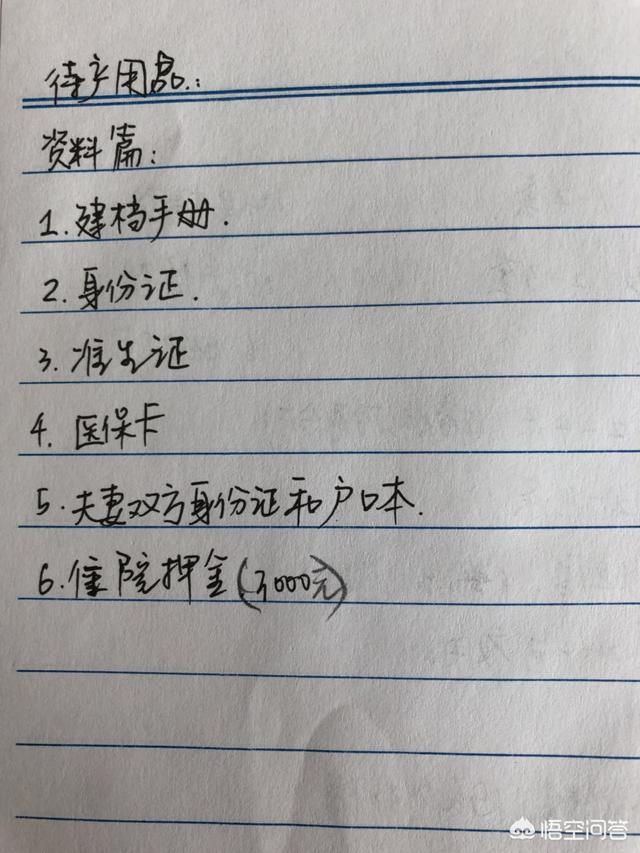 待产用品:
资料篇:
1.建档手册.
2.身份证.
3.准生证
4.医保卡
5.夫妻双方身份证和户口本.
6.住院押金(3000元)
悟空问答